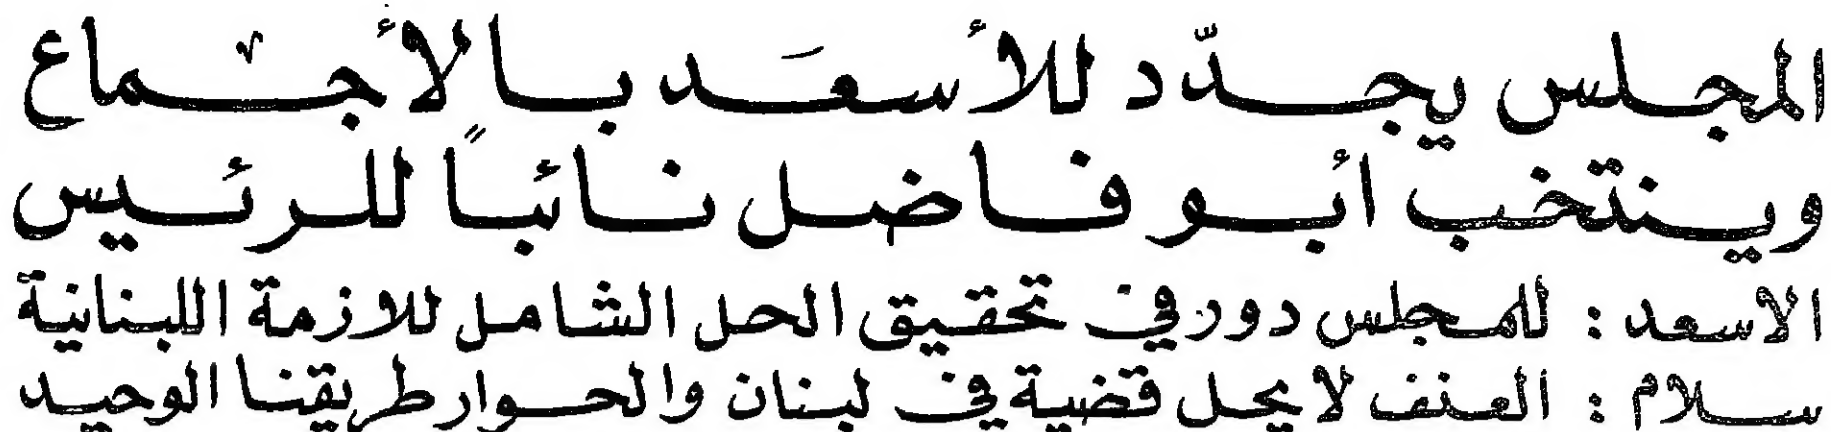 المجلس يجدّد للأسعَد بالأجماع
وينتخب أبو فاضل نائباً للرئيس
الاسعد : للمجلس دور في تحقيق الحل الشامل للازمة اللبنانية
سلام : العنف لا يحل قضية في لبنان والحوار طريقنا الوحيد